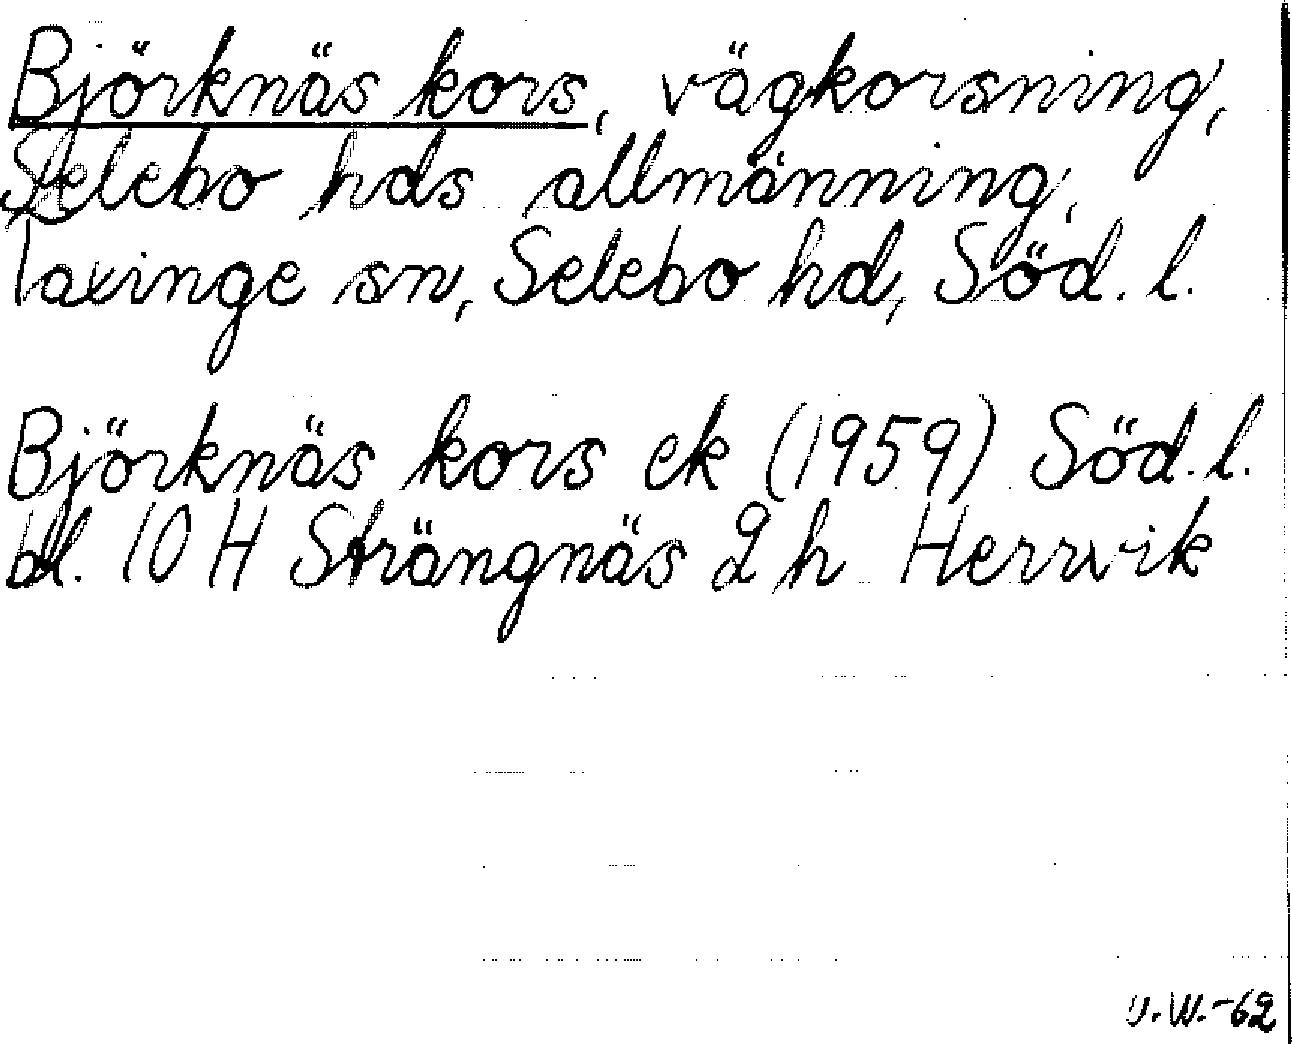 Björknäs kors, vägkorsning,
Selebo hds allmänning,
Taxinge sn, Selebo hd, Söd. l.
Björknäs kors ek (1959) Söd. l.
bl. 10 H Strängnäs 2 h Herrvik
-62